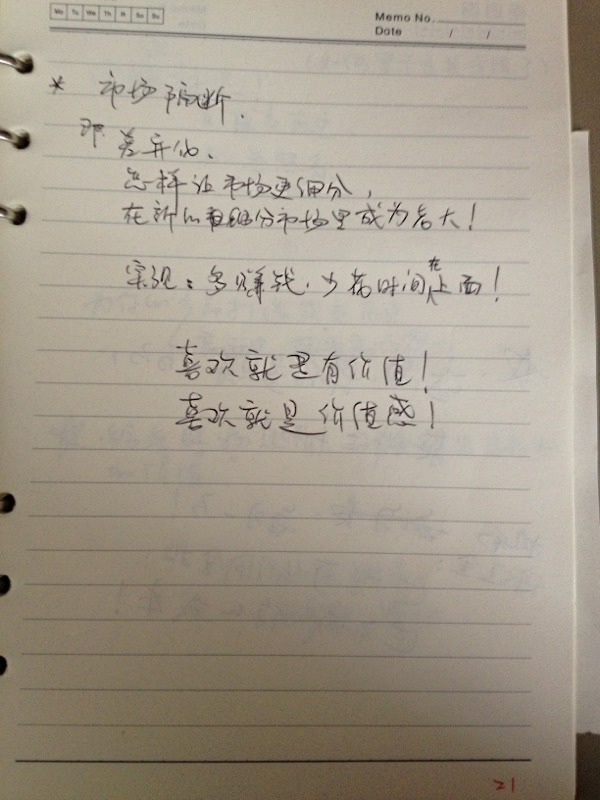 Mo Tu We Th Fr Sa Su
Memo No.
Date / /
* 市场隔断.
即 差异化.
怎样让市场更细分,
在新的直细分市场里成为老大!
实现:多赚钱.少花时间在上面!
喜欢就是有价值!
喜欢就是价值感!
21